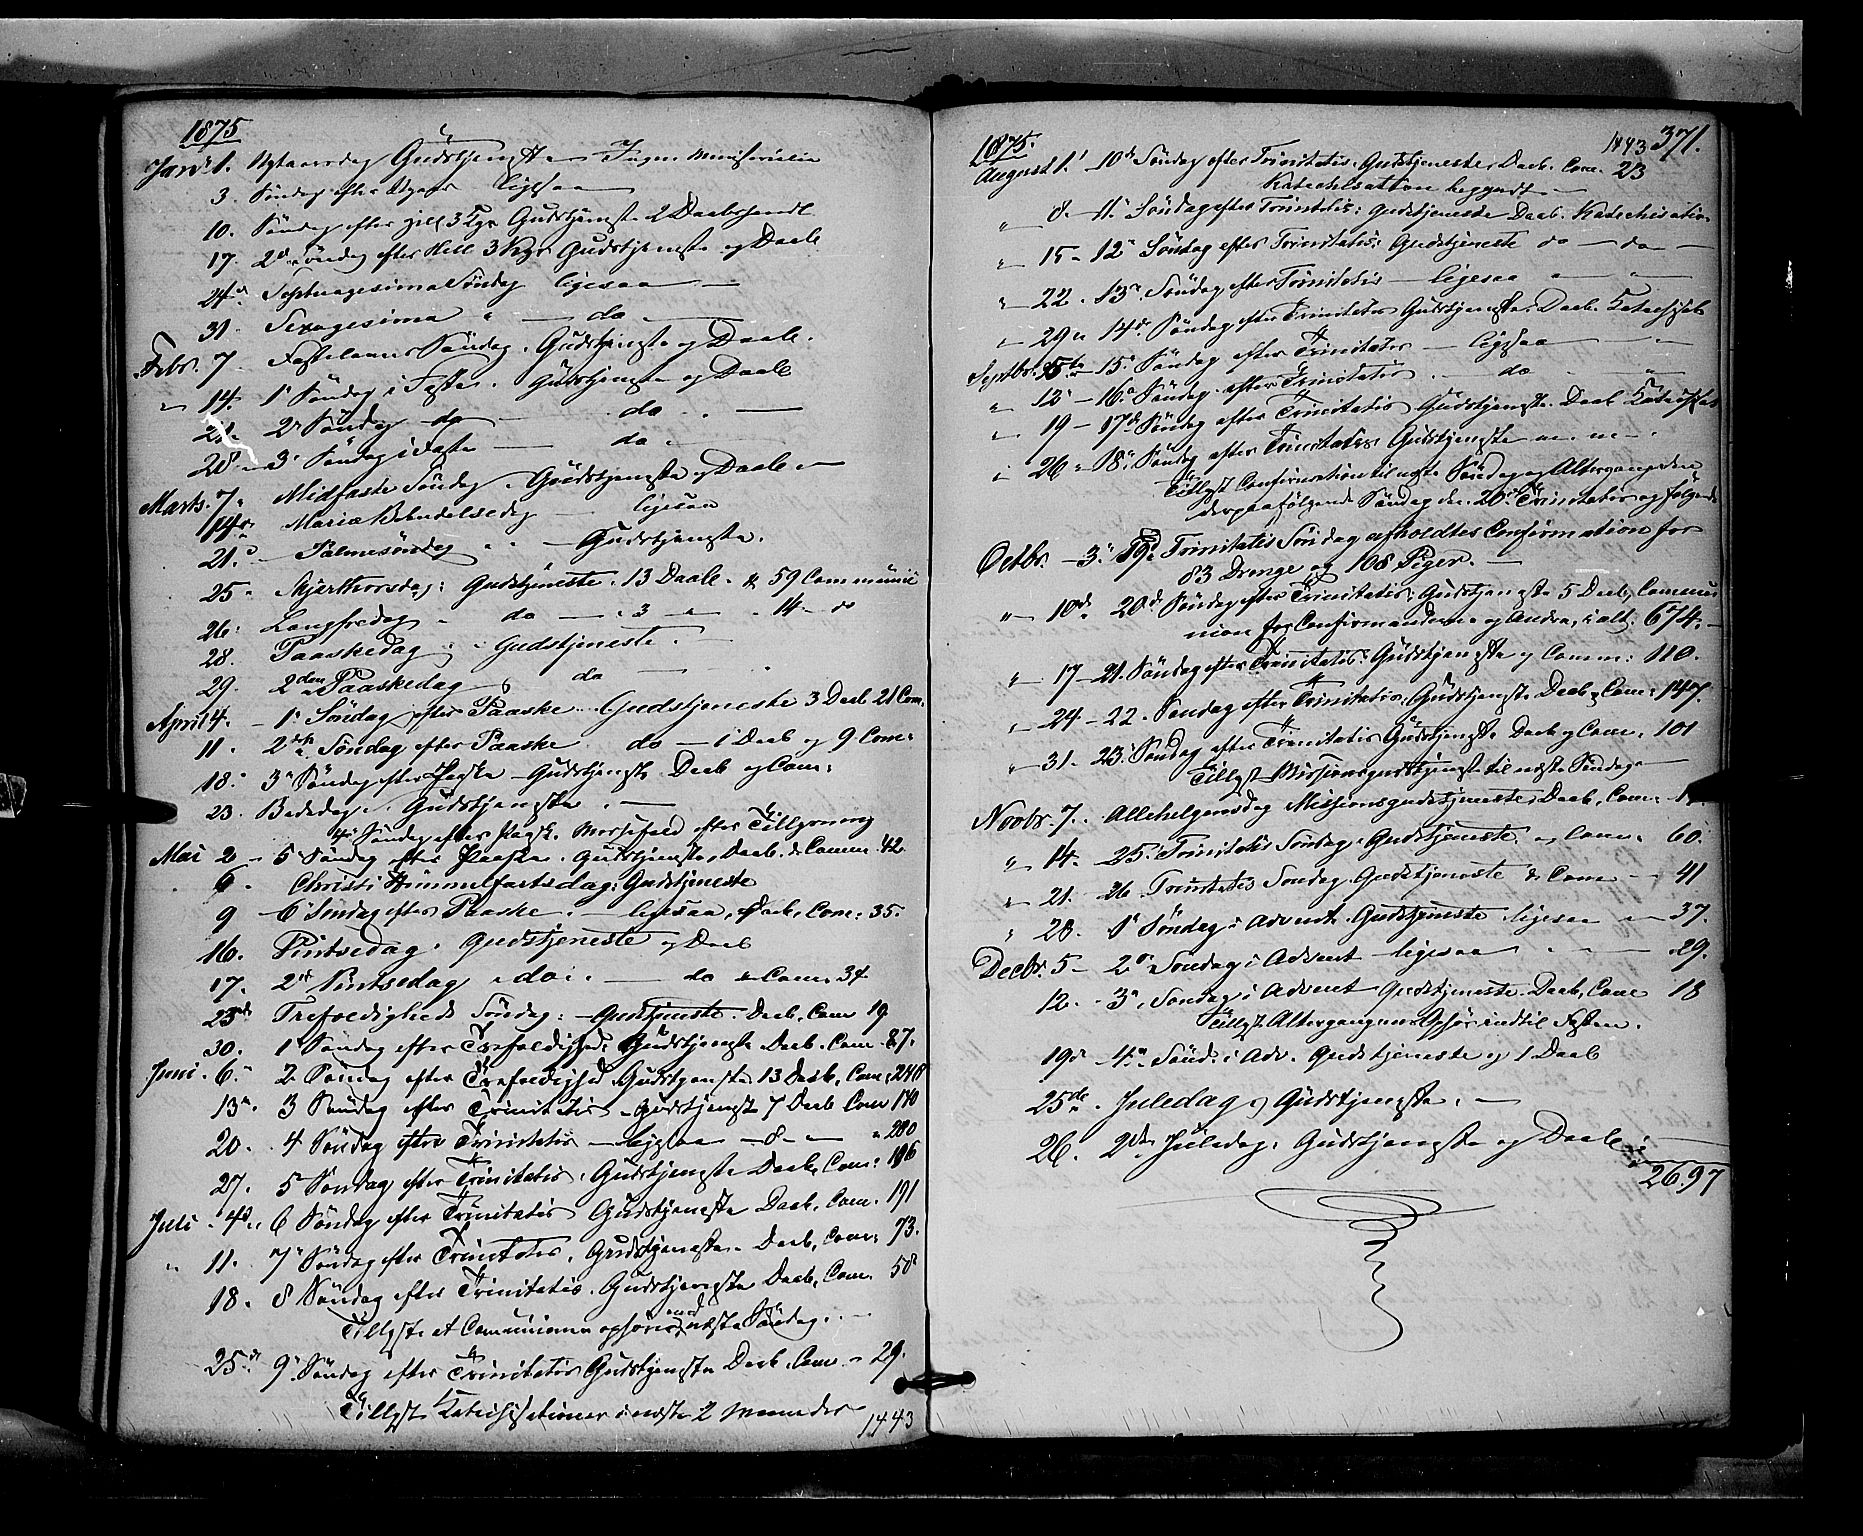 1875
Jan: 1. Nytaarsdag Gudstjeneste Ingen Ministerialia
3. Søndag efter Nytaar ligesaa
10. Søndag efter Hell 3 Kgr Gudstjeneste 2 Daabshandl
17. 2d Søndag efter Hell 3 Kgr Gudstjeneste og Daab
24d Septuagesima Søndag ligesaa
31. Sexagesima " do
Febr. 7. Fastelavns Søndag. Gudstjeneste og Daab.
" 14. 1 Søndag i Faste. Gudstjeneste og Daab
21. 2 Søndag do do
28 - 3 Søndag i Faste do
Marts. 7. Midfaste Søndag Gudstjeneste og Daab
14d Mariæ Bebudelsedag ligesaa
21. Palmesøndag Gudstjeneste.
25 Skjærthorsdag: Gudstjeneste. 13 Daab. & 59 Communic
26. Langfredag do 3 " 14 do
28. Paaskedag Gudstjeneste.
29. 2den Paaskedag do
April 4. 1 Søndag efter Paaske Gudstjeneste 3 Daab 21 Com.
11. 2den Søndag efter Paaske do 1 Daab og 9 Com:
18. 3 Søndag efter Paaske Gudstjeneste Daab og Com:
23. Bededag. Gudstjeneste.
4 Søndag efter Paask. Messefald efter Tillysning
Mai 2 - 5 Søndag efter Paaske. Gudstjeneste, Daab. & Comm. 42
6. Christi Himmelfartsdag: Gudstjeneste
9 - 6 Søndag efter Paaske. ligesaa, Daab, Com: 35.
16. Pintsedag. Gudstjeneste og Daab
17. 2d Pintsedag do: do & Com. 34
23d Trefoldigheds Søndag: Gudstjeneste. Daab, Com 19
30. 1 Søndag efter Trefoldighed: Gudstjeneste Daab. Com. 87.
Juni. 6. 2 Søndag efter Trefoldighed Gudstjeneste 13 Daab, Com: 248
13. 3 Søndag efter Trinitatis Gudstjeneste 7 Daab Com 170
20. 4 Søndag efter Trinitatis ligesaa 8 " 280
27. 5 Søndag efter Trinitatis: Gudstjeneste Daab, Com: 186
Juli. 4d. 6 Søndag efter Trinitatis Gudstjeneste Daab, Com. 191
" 11. 7 Søndag efter Trinitatis, Gudstjeneste Daab, Com: 73.
18. 8 Søndag efter Trinitatis. Gudstjeneste Daab, Com. 58
Tillyst at Communionen ophører med næste Søndag.
25d 9 Søndag efter Trinitatis Gudstjeneste Daab. Com. 29.
Tillyst Katechisationer i næste 2 Maaneder
1443
1875. 1443 371.
August 1. 10d Søndag efter Trinitatis: Gudstjeneste, Daab. Com. 23
Katechisation begyndt
" 8. 11. Søndag efter Trinitatis: Gudstjeneste Daab. Katechisation
" 15 - 12 Søndag efter Trinitatis: Gudstjeneste do do
" 22. 13. Søndag efter Trinitatis ligesaa
" 29 14d Søndag efter Trinitatis Gudstjeneste. Daab. Katechisat
Septbr. 5te 15. Søndag efter Trinitatis ligesaa
" 12 - 16. Søndag efter Trinitatis do
" 19 - 17d Søndag efter Trinitatis Gudstjeneste. Daab Katechisat
" 26 18. Søndag efter Trinitatis: Gudstjeneste
Tillyst Confirmation til næste Søndag og Altergang den
derpaafølgende Søndag den 20d Trinitatis og følgende
Octbr. 3. 19. Trinitatis Søndag afholdtes Confirmation for
83 Drenge og 108 Piger.
" 10d 20d Søndag efter Trinitatis: Gudstjeneste 5 Daab, Commu
nion for Confirmanderne og Andre, i alt. 674.
" 17 - 21. Søndag efter Trinitatis: Gudstjeneste og Comm: 110.
" 24 - 22. Søndag efter Trinitatis: Gudstjeneste Daab, Com: 147.
" 31. 23. Søndag efter Trinitatis Gudstjeneste Daab og Com. 101
Tillyst Missionsgudstjeneste til næste Søndag
Novbr. 7. Allehelgensdag Missionsgudstjeneste, Daab, Com.
" 14. 25. Trinitatis Søndag: Gudstjeneste og Com. 60.
" 21. 26. Trinitatis Søndag Gudstjeneste & Com 41
" 28. 1 Søndag i Advent. Gudstjeneste ligesaa 37.
Decbr. 5 - 2 Søndag i Advent ligesaa 29.
12. 3 Søndag i Advent Gudstjeneste. Daab, Com 18
Tillyst Altergangens Ophør indtil Festen.
19 4 Sønd. i Adv. Gudstjeneste og 1 Daab
25de Juledag Gudstjeneste.
26. 2d Juledag: Gudstjeneste og Daab
2697